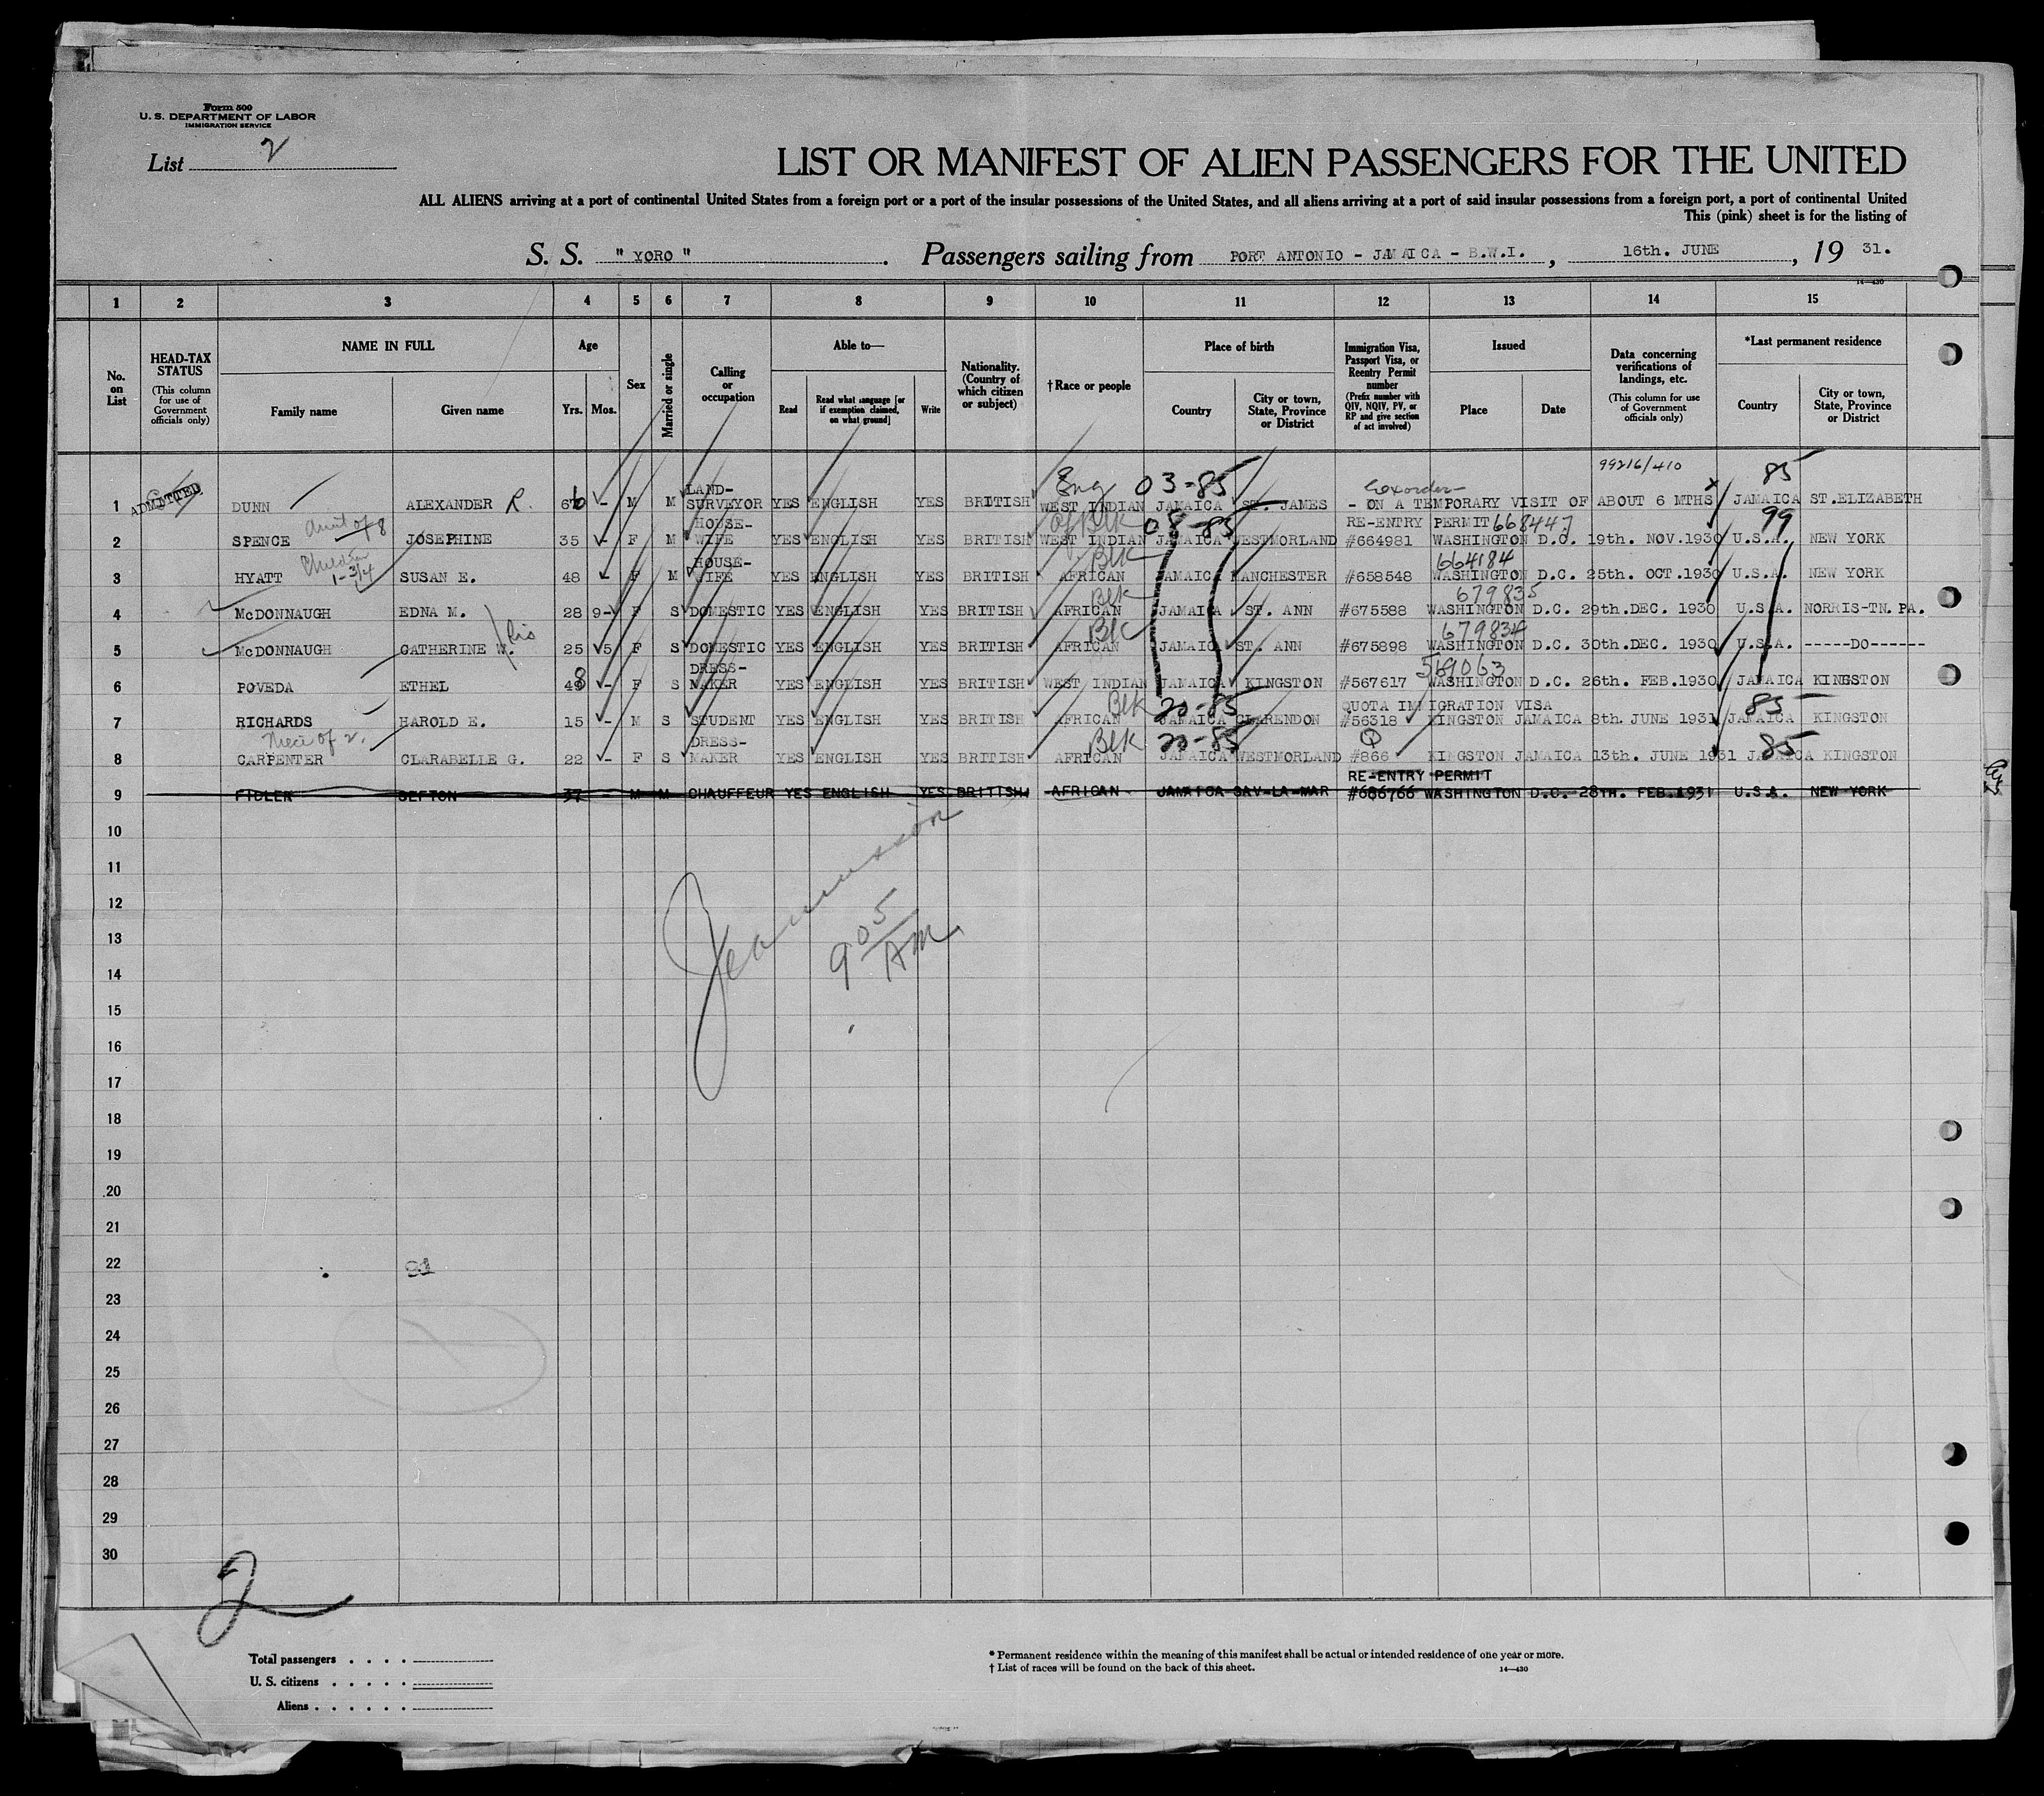 Form 500
U. S. DEPARTMENT OF LABOR
IMMIGRATION SERVICE
List 2
LIST OR MANIFEST OF ALIEN PASSENGERS FOR THE UNITED
ALL ALIENS arriving at a port of continental United States from a foreign port or a port of the insular possessions of the United States, and all aliens arriving at a port of said insular possessions from a foreign port, a port of continental United
This (pink) sheet is for the listing of
S. S. " YORO " . Passengers sailing from PORT ANTONIO - JAMAICA - B.W.I. , 16th. JUNE , 19 31.
14—430
1 2 3 4 5 6 7 8 9 10 11 12 13 14 15
No. on List
HEAD-TAX STATUS (This column for use of Government officials only)
NAME IN FULL
Family name Given name
Age
Yrs. Mos.
Sex
Married or single
Calling or occupation
Able to—
Read Read what language [or if exemption claimed, on what ground] Write
Nationality. (Country of which citizen or subject)
† Race or people
Place of birth
Country City or town, State, Province or District
Immigration Visa, Passport Visa, or Reentry Permit number (Prefix number with QIV, NQIV, PV, or RP and give section of act involved)
Issued
Place Date
Data concerning verifications of landings, etc. (This column for use of Government officials only)
*Last permanent residence
Country City or town, State, Province or District
99216/410 85
Eng 03-85
1 ADMITTED DUNN ALEXANDER R. 66 - M M LAND-SURVEYOR YES ENGLISH YES BRITISH WEST INDIAN JAMAICA ST. JAMES - ON A TEMPORARY VISIT OF ABOUT 6 MTHS JAMAICA ST.ELIZABETH
Aunt of 8 Blk 08-85 RE-ENTRY PERMIT 668447 99
2 SPENCE JOSEPHINE 35 - F M HOUSE-WIFE YES ENGLISH YES BRITISH WEST INDIAN JAMAICA WESTMORLAND #664981 WASHINGTON D.C. 19th. NOV.1930 U.S.A. NEW YORK
Children 1-3/4 Blk 664184
3 HYATT SUSAN E. 48 - F M HOUSE-WIFE YES ENGLISH YES BRITISH AFRICAN JAMAICA MANCHESTER #658548 WASHINGTON D.C. 25th. OCT.1930 U.S.A. NEW YORK
Blk 679835
4 McDONNAUGH EDNA M. 28 9- F S DOMESTIC YES ENGLISH YES BRITISH AFRICAN JAMAICA ST. ANN #675588 WASHINGTON D.C. 29th.DEC. 1930 U.S.A. NORRIS-TN. PA.
Sis Blk 679834
5 McDONNAUGH CATHERINE W. 25 5 F S DOMESTIC YES ENGLISH YES BRITISH AFRICAN JAMAICA ST. ANN #675898 WASHINGTON D.C. 30th.DEC. 1930 U.S.A. -----DO------
6 POVEDA ETHEL 48 - F S DRESS-MAKER YES ENGLISH YES BRITISH WEST INDIAN JAMAICA KINGSTON #567617 WASHINGTON D.C. 26th. FEB.1930 JAMAICA KINGSTON
Blk 20-85 QUOTA IMMIGRATION VISA 85
7 RICHARDS HAROLD E. 15 - M S STUDENT YES ENGLISH YES BRITISH AFRICAN JAMAICA CLARENDON #56318 KINGSTON JAMAICA 8th. JUNE 1931 JAMAICA KINGSTON
Niece of 2. Blk 20-85 Q 85
8 CARPENTER CLARABELLE G. 22 - F S DRESS-MAKER YES ENGLISH YES BRITISH AFRICAN JAMAICA WESTMORLAND #866 KINGSTON JAMAICA 13th. JUNE 1931 JAMAICA KINGSTON
RE-ENTRY PERMIT
9 FIDLER SEFTON 37 - M M CHAUFFEUR YES ENGLISH YES BRITISH AFRICAN JAMAICA SAV-LA-MAR #686766 WASHINGTON D.C. 28TH. FEB.1931 U.S.A. NEW YORK
10
11
12
13
9 05 AM
14
15
16
17
18
19
20
21
22
23
24
25
26
27
28
29
30
2
Total passengers . . . .
U. S. citizens . . . . .
Aliens . . . . . .
* Permanent residence within the meaning of this manifest shall be actual or intended residence of one year or more.
† List of races will be found on the back of this sheet. 14—430